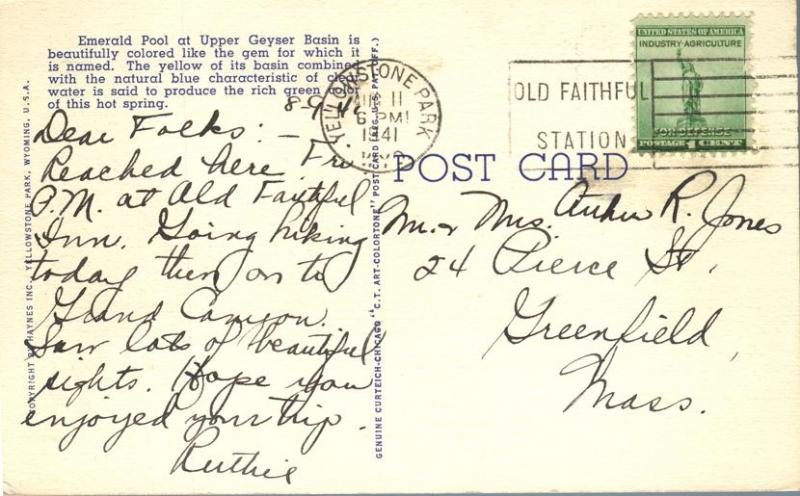 Emerald Pool at Upper Geyser Basin is
beautifully colored like the gem for which it
is named. The yellow of its basin combined
with the natural blue characteristic of clear
water is said to produce the rich green color
of this hot spring.
8-9-41
Dear Folks: -
Reached here Fri.
P.M. at Old Faithful
Inn. Going hiking
today then on to
Grand Canyon.
Saw lots of beautiful
sights. Hope you
enjoyed your trip.
Ruthie
COPYRIGHT BY HAYNES INC., YELLOWSTONE PARK, WYOMING, U.S.A.
GENUINE CURTEICH-CHICAGO "C.T. ART-COLORTONE" POST CARD (REG. U.S. PAT. OFF.)
YELLOWSTONE PARK
AUG 11
6 PM
1941
WYO
OLD FAITHFUL
STATION
UNITED STATES OF AMERICA
INDUSTRY·AGRICULTURE
FOR DEFENSE
POSTAGE 1 CENT
POST CARD
M. + Mrs. Arthur R. Jones
24 Pierce St,
Greenfield,
Mass.